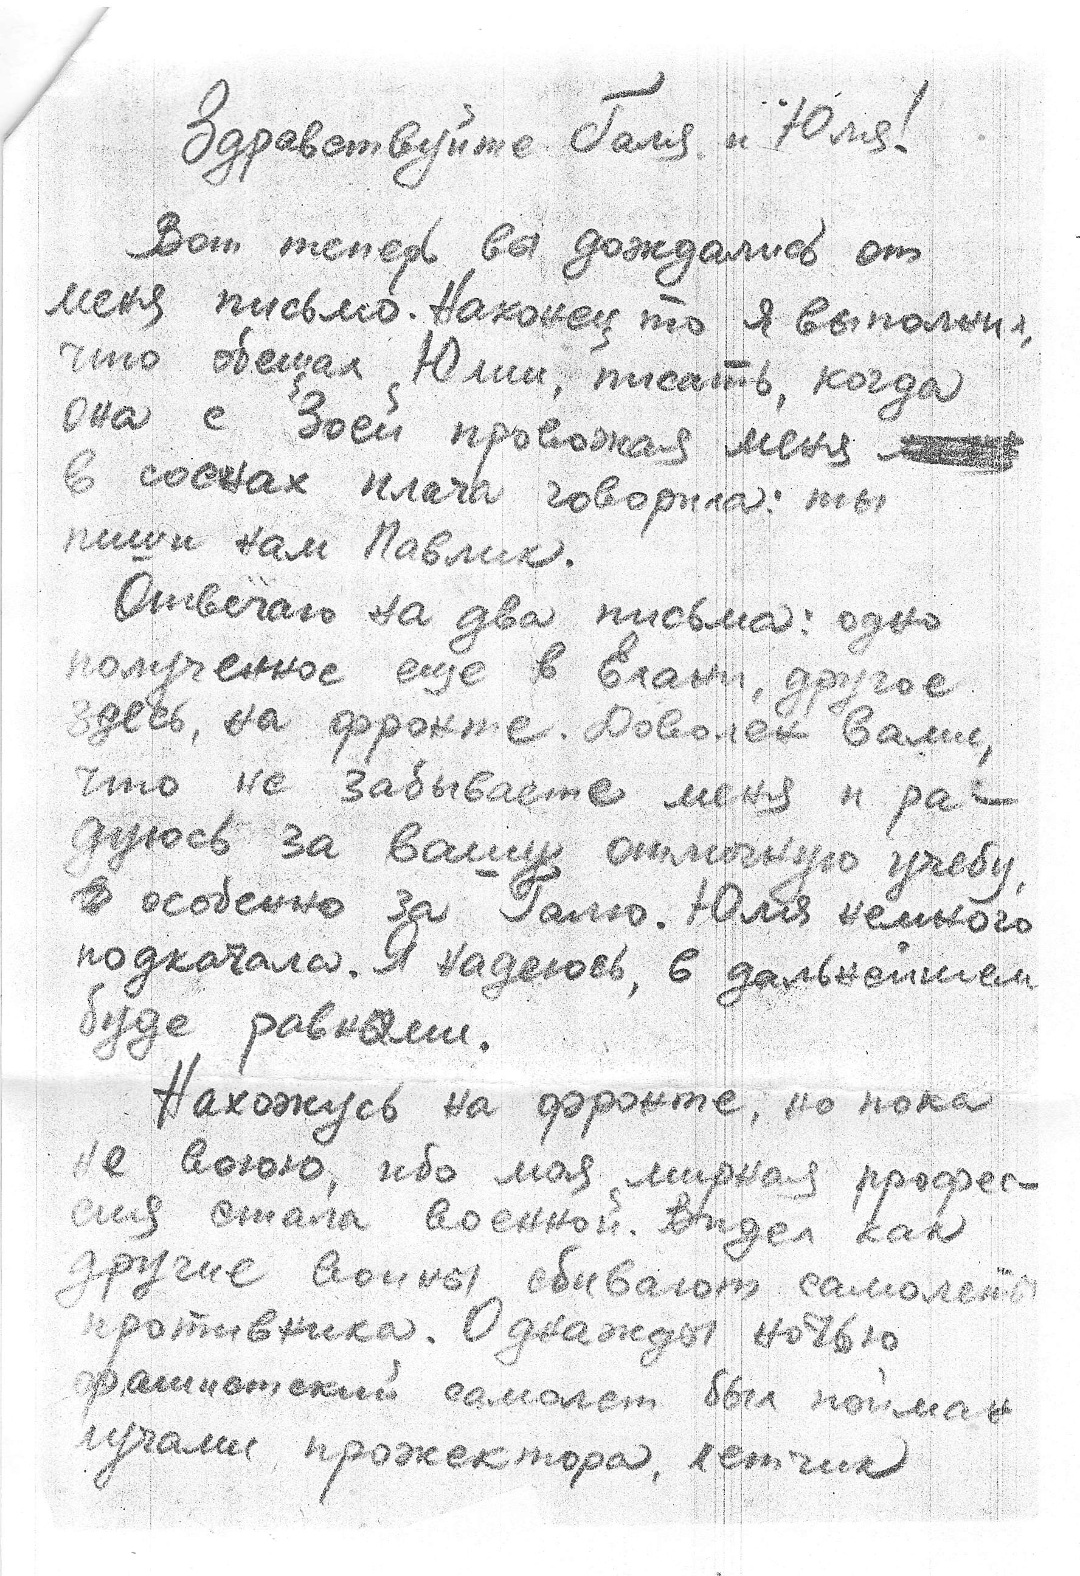 Здравствуйте Галя и Юля!
Вот теперь вы дождались от
меня письмо. Наконец то я выполнил,
что обещал Юлии, писать, когда
она с Зоей провожая меня
в соснах плача говорила: ты
пиши нам Павлик.
Отвечаю на два письма: одно
полученное еще в Елани, другое
здесь, на фронте. Доволен вами,
что не забываете меня и ра-
дуюсь за вашу отличную учебу,
особенно за Галю. Юля немного
подкачала. Я надеюсь, в дальнейшем
буде равными.
Нахожусь на фронте, но пока
не воюю, ибо моя мирная профес-
сия стала военной. Видел как
другие воины сбивают самолеты
противника. Однажды ночью
фашистский самолет был пойман
лучами прожектора, летчик